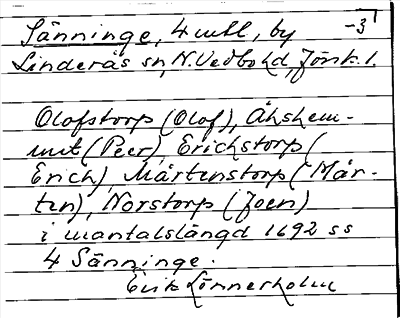 Sänninge, 4 mtl, by -31
Linderås sn, N. Vedbo hd, Jönk. l.
Olofstorp (Olof), Åhshem-
mit (Peer), Erichstorp (
Erich), Mårtenstorp (Mår-
ten), Norstorp (Joen)
i mantalslängd 1692 ss
4 Sänninge.
Erik Lönnerholm